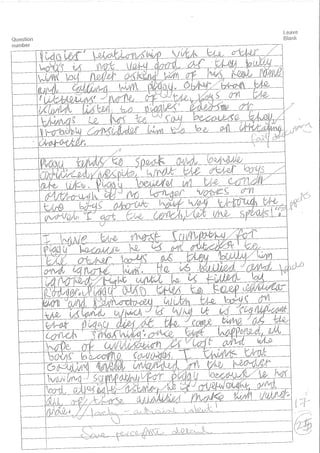 Question
number
Leave
Blank
Piggies' relationship with the other
boys is not very good as they bully
him by never asking him of his real name
and calling him Piggy. Other than the
'littleuns' none of the boys on the
island listen to piggies' ideas or
things he has to say because they
probably consider him to be an irritating
character.
Piggy tends to speak and behave
civilized despite what the other boys
are like. Piggy believes in the conch
although it no longer works on
the boys about half way through the
novel 'I got the conch, let me speak!'.
I have the most sympathy for
Piggy because he is an outcast to
the other boys as they bully him
and ignore him. He is bullied and
ignored right until he is killed by
Roger. Piggy also tries to keep
him and democracy with the boys on
the island which is why it is significant
that piggy dies at the same time as the
conch 'smashing' once that happened, all
hope of civilisation is lost and the
boys become savages. I think that
Golding intended on the reader
having sympathy for piggy because he has
bad eyesight, asthma, is overweight, and
all of those qualities make him vulner-
able.
Some perceptive detail